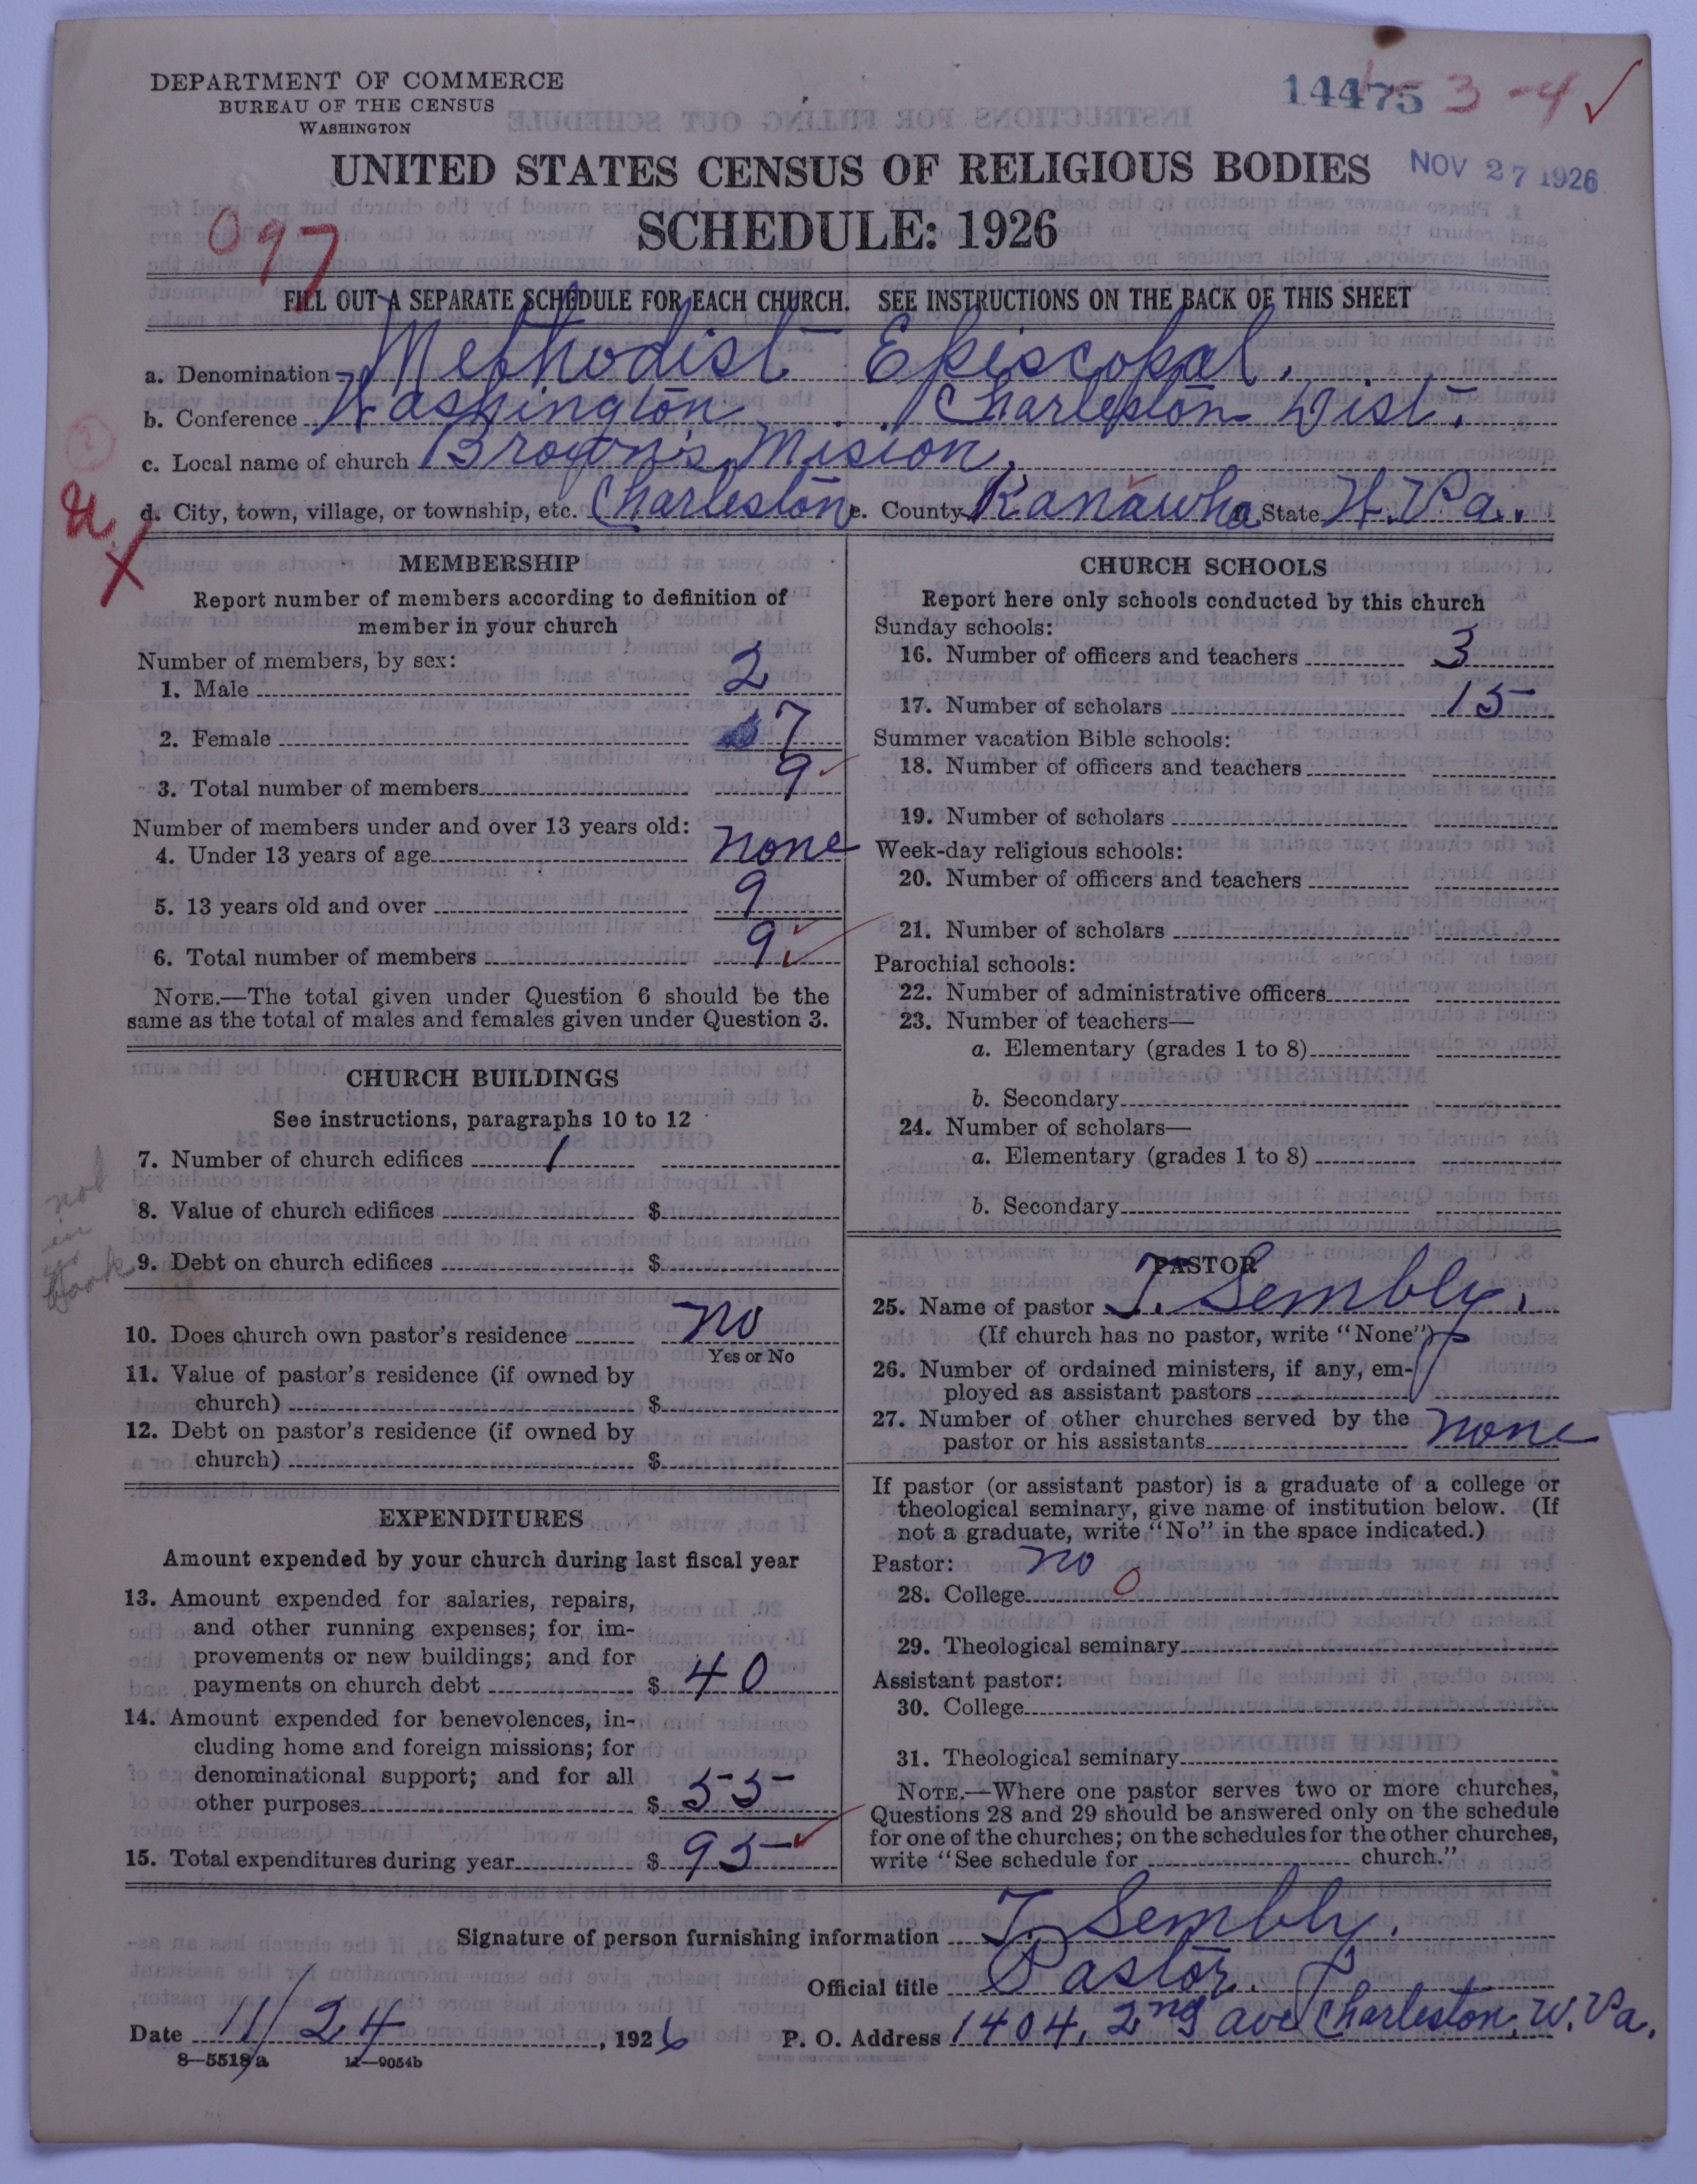 DEPARTMENT OF COMMERCE
BUREAU OF THE CENSUS
WASHINGTON
14475 3-4 ✓
UNITED STATES CENSUS OF RELIGIOUS BODIES
NOV 27 1926
SCHEDULE: 1926
097
FILL OUT A SEPARATE SCHEDULE FOR EACH CHURCH. SEE INSTRUCTIONS ON THE BACK OF THIS SHEET
a. Denomination Methodist Episcopal.
b. Conference Washington Charleston Dist.
c. Local name of church Brown's Mision.
d. City, town, village, or township, etc. Charleston e. County Kanawha State W.Va.
MEMBERSHIP
Report number of members according to definition of
member in your church
Number of members, by sex:
1. Male 2
2. Female 7
3. Total number of members 9
Number of members under and over 13 years old:
4. Under 13 years of age none
5. 13 years old and over 9
6. Total number of members 9
NOTE.—The total given under Question 6 should be the
same as the total of males and females given under Question 3.
CHURCH BUILDINGS
See instructions, paragraphs 10 to 12
7. Number of church edifices 1
8. Value of church edifices $
9. Debt on church edifices $
not
in
book
10. Does church own pastor's residence no
Yes or No
11. Value of pastor's residence (if owned by
church) $
12. Debt on pastor's residence (if owned by
church) $
EXPENDITURES
Amount expended by your church during last fiscal year
13. Amount expended for salaries, repairs,
and other running expenses; for im-
provements or new buildings; and for
payments on church debt $ 40
14. Amount expended for benevolences, in-
cluding home and foreign missions; for
denominational support; and for all
other purposes $ 55
15. Total expenditures during year $ 95
CHURCH SCHOOLS
Report here only schools conducted by this church
Sunday schools:
16. Number of officers and teachers 3
17. Number of scholars 15
Summer vacation Bible schools:
18. Number of officers and teachers
19. Number of scholars
Week-day religious schools:
20. Number of officers and teachers
21. Number of scholars
Parochial schools:
22. Number of administrative officers
23. Number of teachers—
a. Elementary (grades 1 to 8)
b. Secondary
24. Number of scholars—
a. Elementary (grades 1 to 8)
b. Secondary
PASTOR
25. Name of pastor T. Sembly.
(If church has no pastor, write "None")
26. Number of ordained ministers, if any, em-
ployed as assistant pastors
27. Number of other churches served by the
pastor or his assistants none
If pastor (or assistant pastor) is a graduate of a college or
theological seminary, give name of institution below. (If
not a graduate, write "No" in the space indicated.)
Pastor: no
28. College 0
29. Theological seminary
Assistant pastor:
30. College
31. Theological seminary
NOTE.—Where one pastor serves two or more churches,
Questions 28 and 29 should be answered only on the schedule
for one of the churches; on the schedules for the other churches,
write "See schedule for church."
Signature of person furnishing information T. Sembly.
Official title Pastor.
Date 11/24, 1926 P. O. Address 1404, 2nd ave Charleston, W. Va.
8—5518a 11—9054b